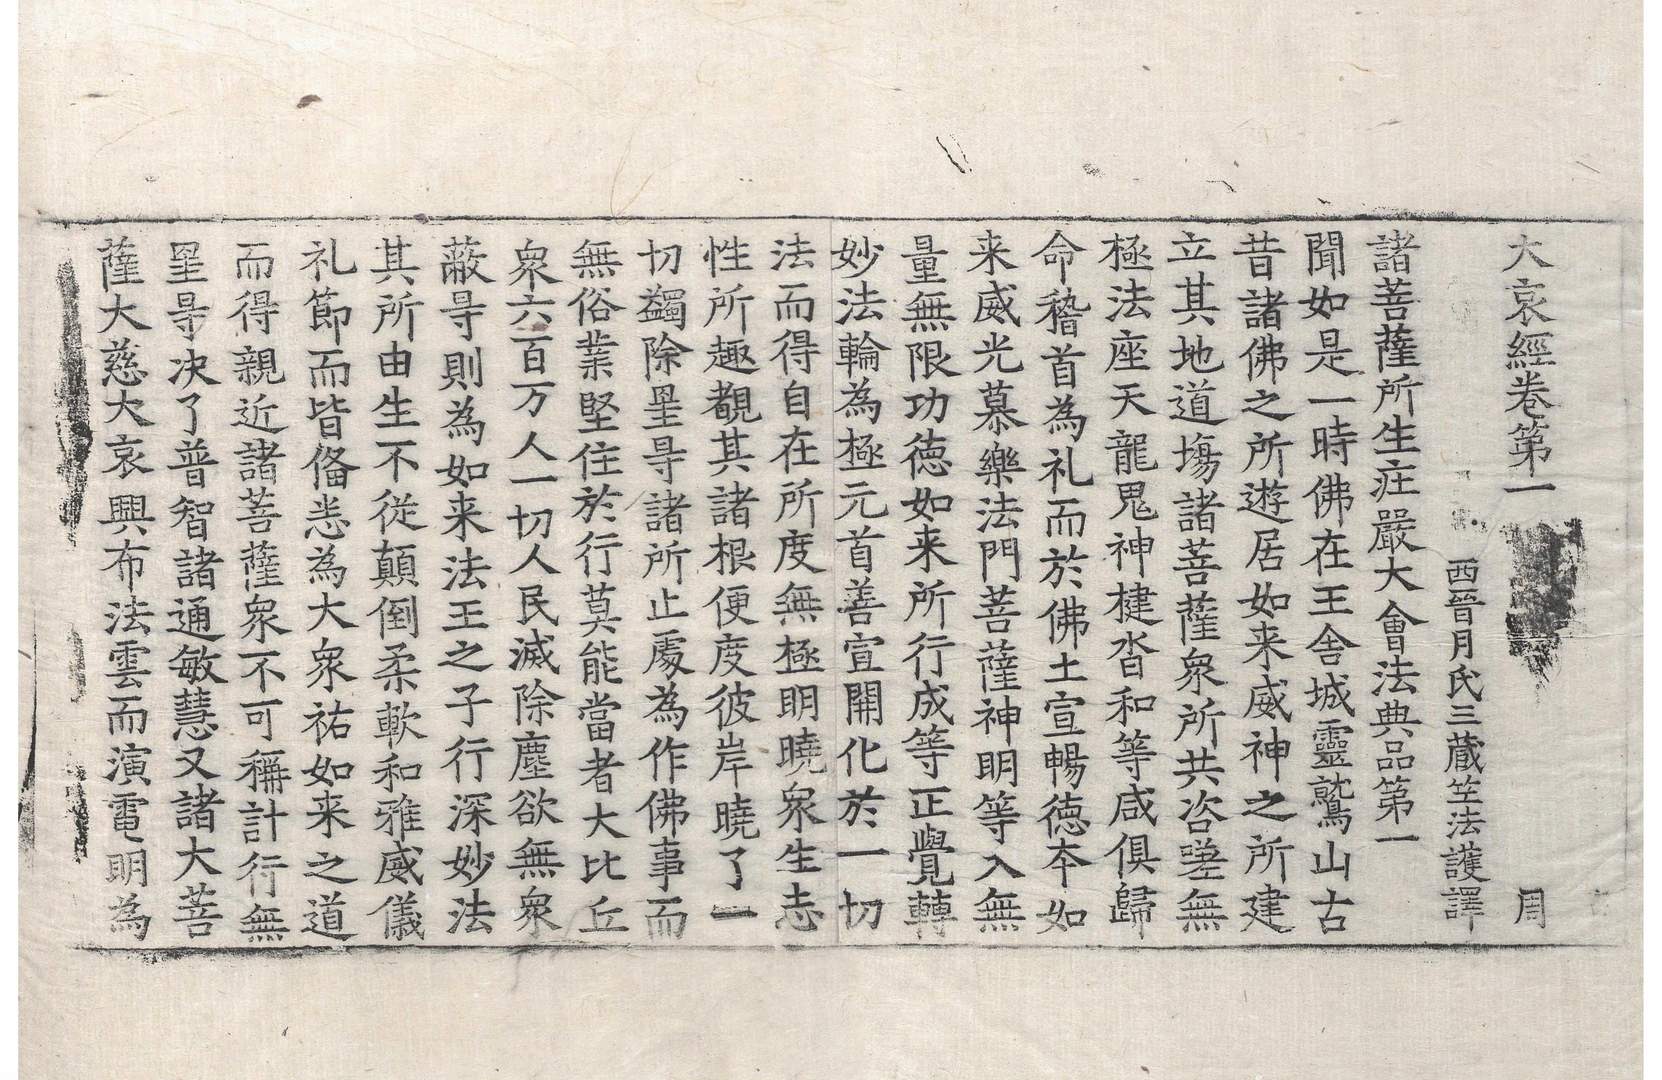 大哀經卷第一 周
西晉月氏三藏竺法護譯
諸菩薩所生庄嚴大會法典品第一
聞如是一時佛在王舍城靈鷲山古
昔諸佛之所遊居如来威神之所建
立其地道場諸菩薩衆所共咨嗟無
極法座天龍鬼神揵沓和等咸俱歸
命稽首為礼而於佛土宣暢德夲如
来威光慕樂法門菩薩神明等入無
量無限功德如来所行成等正覺轉
妙法輪為極元首善宣開化於一切
法而得自在所度無極明曉衆生志
性所趣覩其諸根便度彼岸曉了一
切蠲除罣㝵諸所止處為作佛事而
無俗業堅住於行莫能當者大比丘
衆六百万人一切人民滅除塵欲無衆
蔽㝵則為如来法王之子行深妙法
其所由生不從顛倒柔軟和雅威儀
礼節而皆俻悉為大衆祐如来之道
而得親近諸菩薩衆不可稱計行無
罣㝵决了普智諸通敏慧又諸大菩
薩大慈大哀興布法雲而演電明為